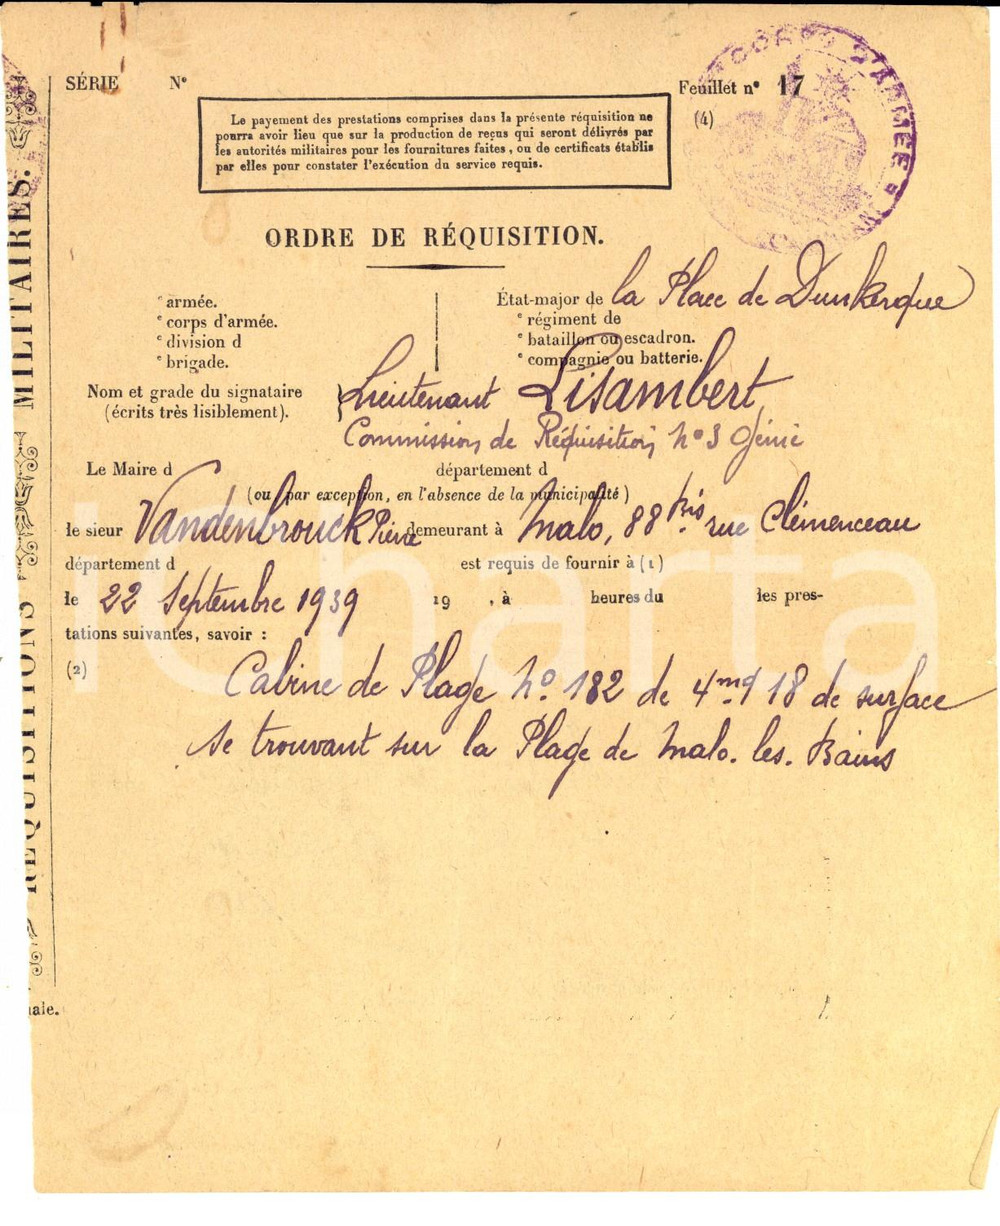 SÉRIE N° Feuillet n° 17
(4)
CORPS D'ARMÉE
Le payement des prestations comprises dans la présente réquisition ne
pourra avoir lieu que sur la production de reçus qui seront délivrés par
les autorités militaires pour les fournitures faites, ou de certificats établis
par elles pour constater l'exécution du service requis.
ORDRE DE RÉQUISITION.
e armée.
e corps d'armée.
e division d
e brigade.
État-major de la Place de Dunkerque
e régiment de
e bataillon ou escadron.
e compagnie ou batterie.
Nom et grade du signataire
(écrits très lisiblement).
Lieutenant Lisambert
Commission de Réquisition n° 3 Génie
Le Maire d département d
(ou par exception, en l'absence de la municipalité)
le sieur Vandenbrouck Pierre demeurant à Malo, 88 bis rue Clémenceau
département d est requis de fournir à (1)
le 22 Septembre 1939 19 , à heures du les pres-
tations suivantes, savoir :
(2)
Cabine de Plage N° 182 de 4mq 18 de surface
se trouvant sur la Plage de Malo-les-Bains
RÉQUISITIONS MILITAIRES.
nale.
iCharta